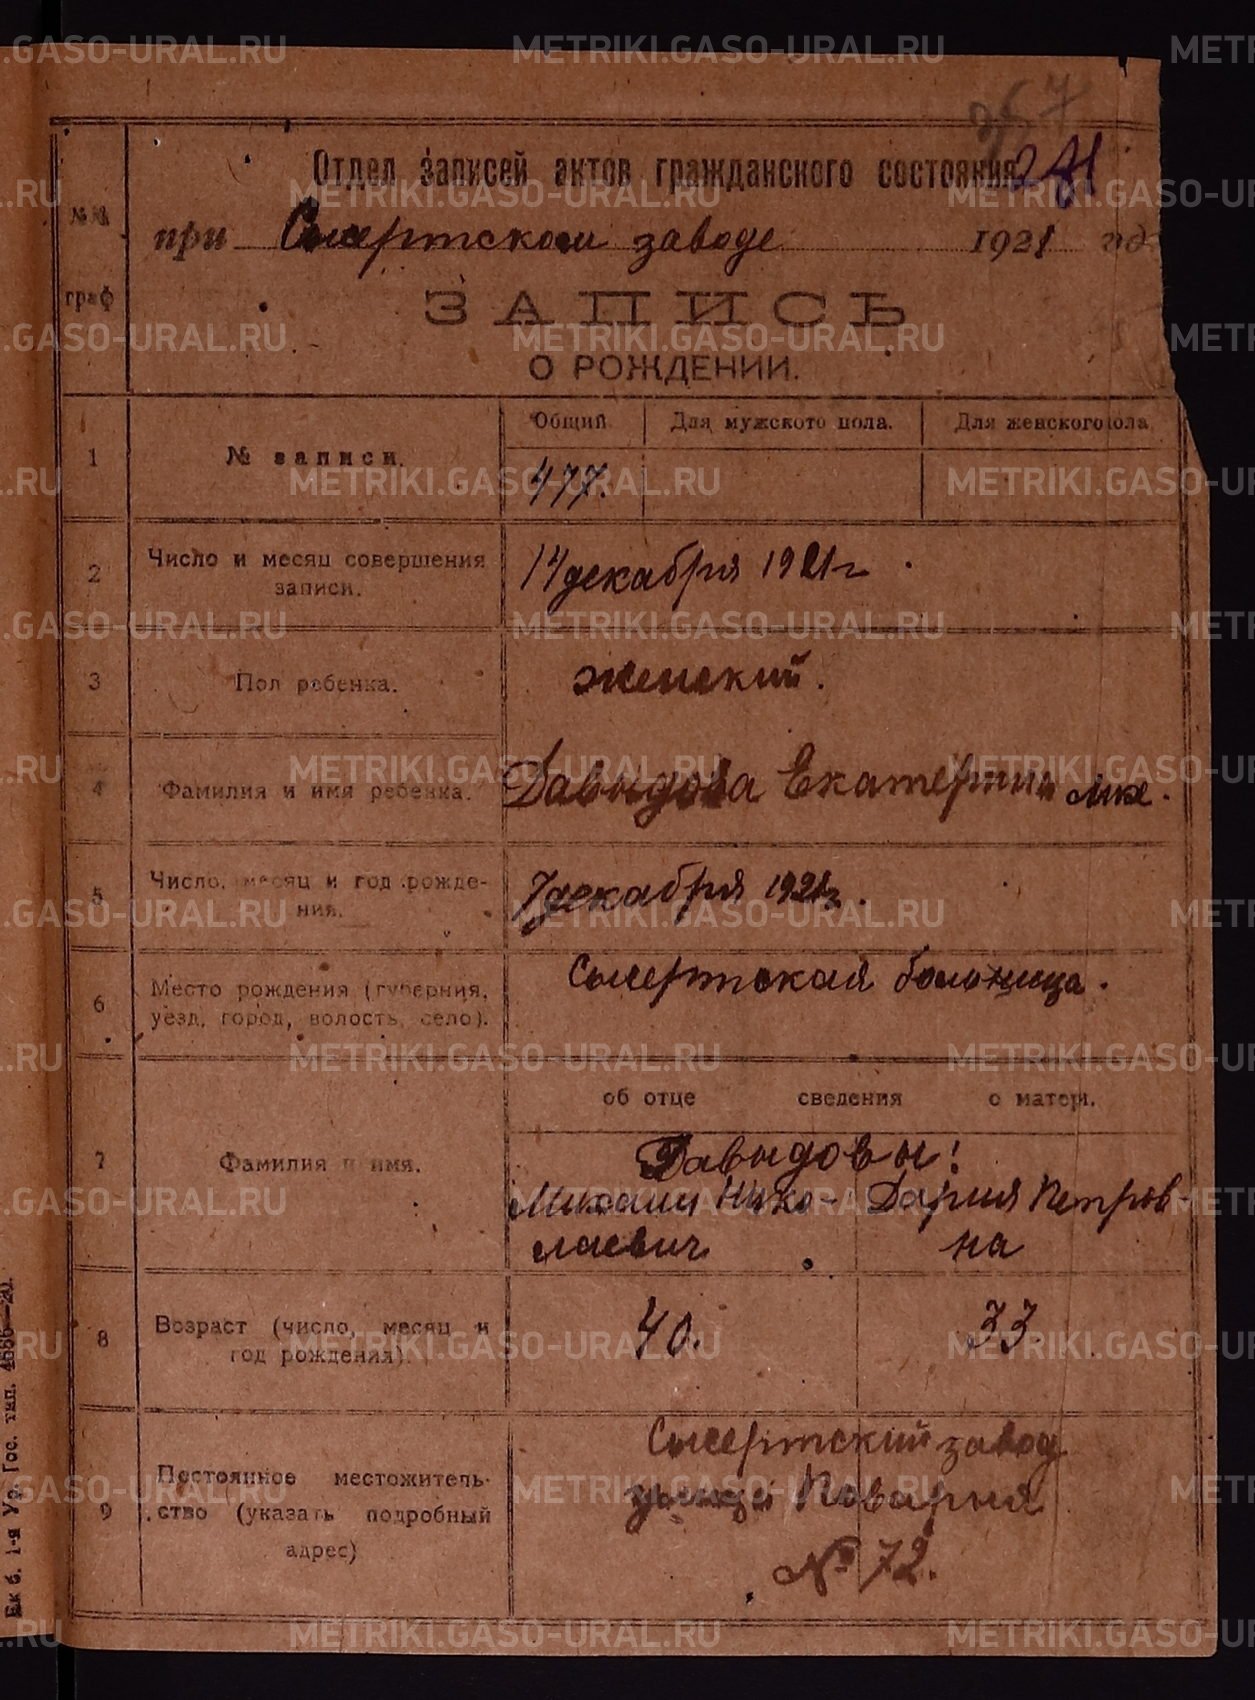 METRIKI.GASO-URAL.RU
267
241
Отдел записей актов гражданского состояния
при Сысертском заводе 1921 год
№№ граф
ЗАПИСЬ
О РОЖДЕНИИ.
Общий Для мужского пола. Для женского пола
1 № записи. 477.
2 Число и месяц совершения записи. 14 декабря 1921 г
3 Пол ребенка. женский.
4 Фамилия и имя ребенка. Давыдова Екатерина Мих.
5 Число, месяц и год рождения. 7 декабря 1921 г.
6 Место рождения (губерния, уезд, город, волость, село). Сысертская больница.
об отце сведения о матери.
7 Фамилия и имя. Давыдовы:
Михаил Нико- Дария Петров-
лаевич на
8 Возраст (число, месяц и год рождения). 40. 33
9 Постоянное местожитель-
ство (указать подробный
адрес)
Сысертский завод
улица Поварня
№ 72.
Ек б. 1-я Ур. Гос. тип. 4666—20.